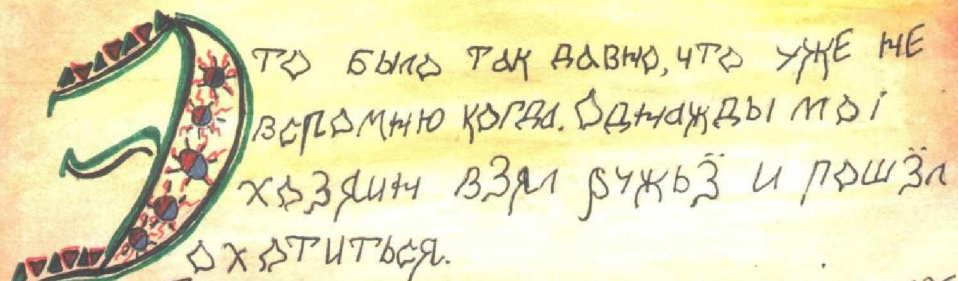 Это было так давно, что уже не
вспомню когда. Однажды моі
хозяин взял ружьё и пошёл
охотиться.